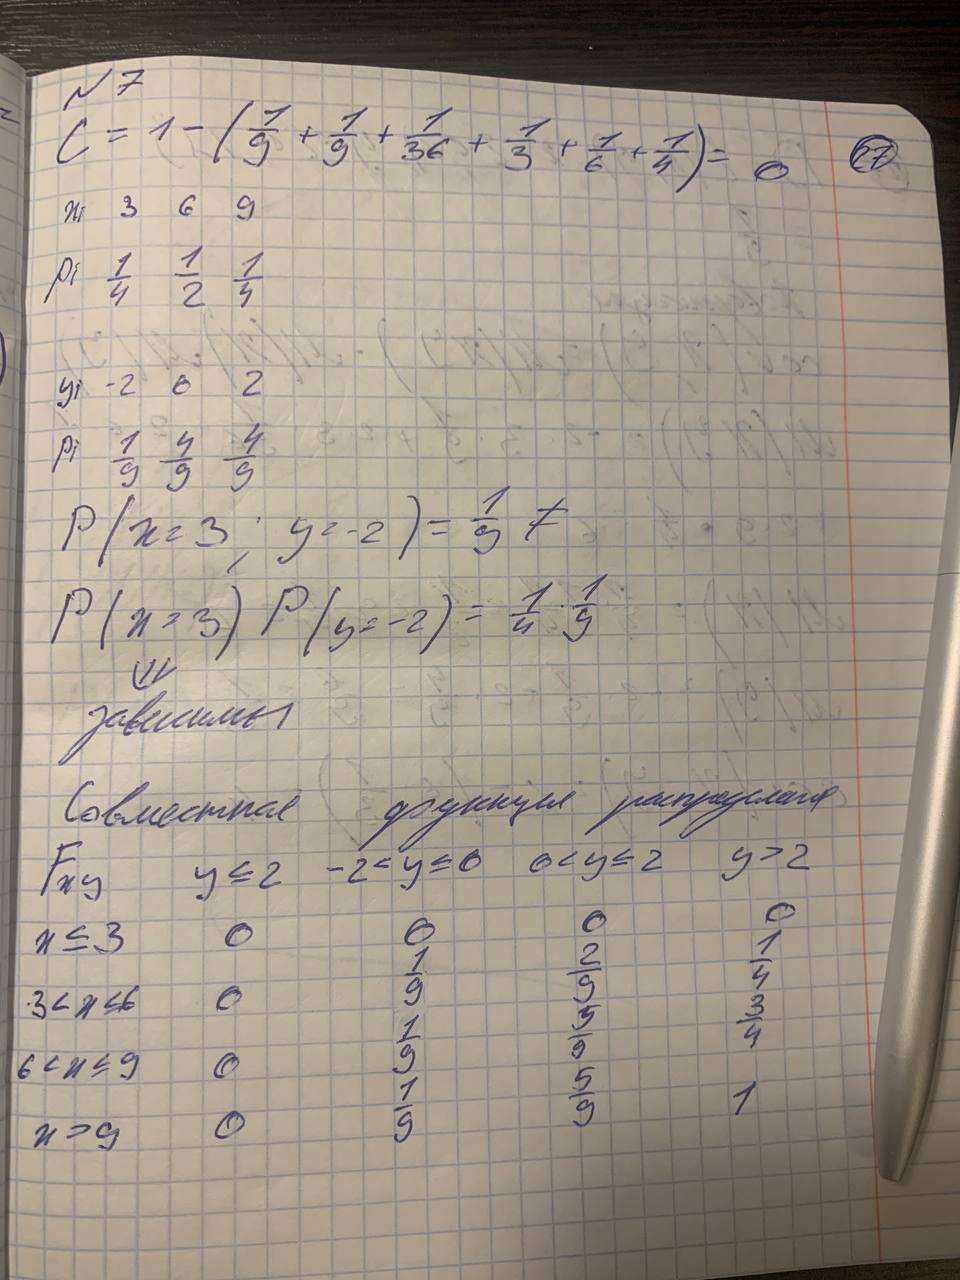 №7
C = 1 - (1/9 + 1/9 + 1/36 + 1/3 + 1/6 + 1/4) = 0 27
xi 3 6 9
pi 1/4 1/2 1/4
yi -2 0 2
pi 1/9 4/9 4/9
P(x=3; y=-2) = 1/9 ≠
P(x=3) P(y=-2) = 1/4 · 1/9
⇓
зависимы
Совместная функция распределения
Fxy y≤2 -2<y≤0 0<y≤2 y>2
x≤3 0 0 0 0
3<x≤6 0 1/9 2/9 1/4
6<x≤9 0 1/9 5/9 3/4
x>9 0 1/9 5/9 1